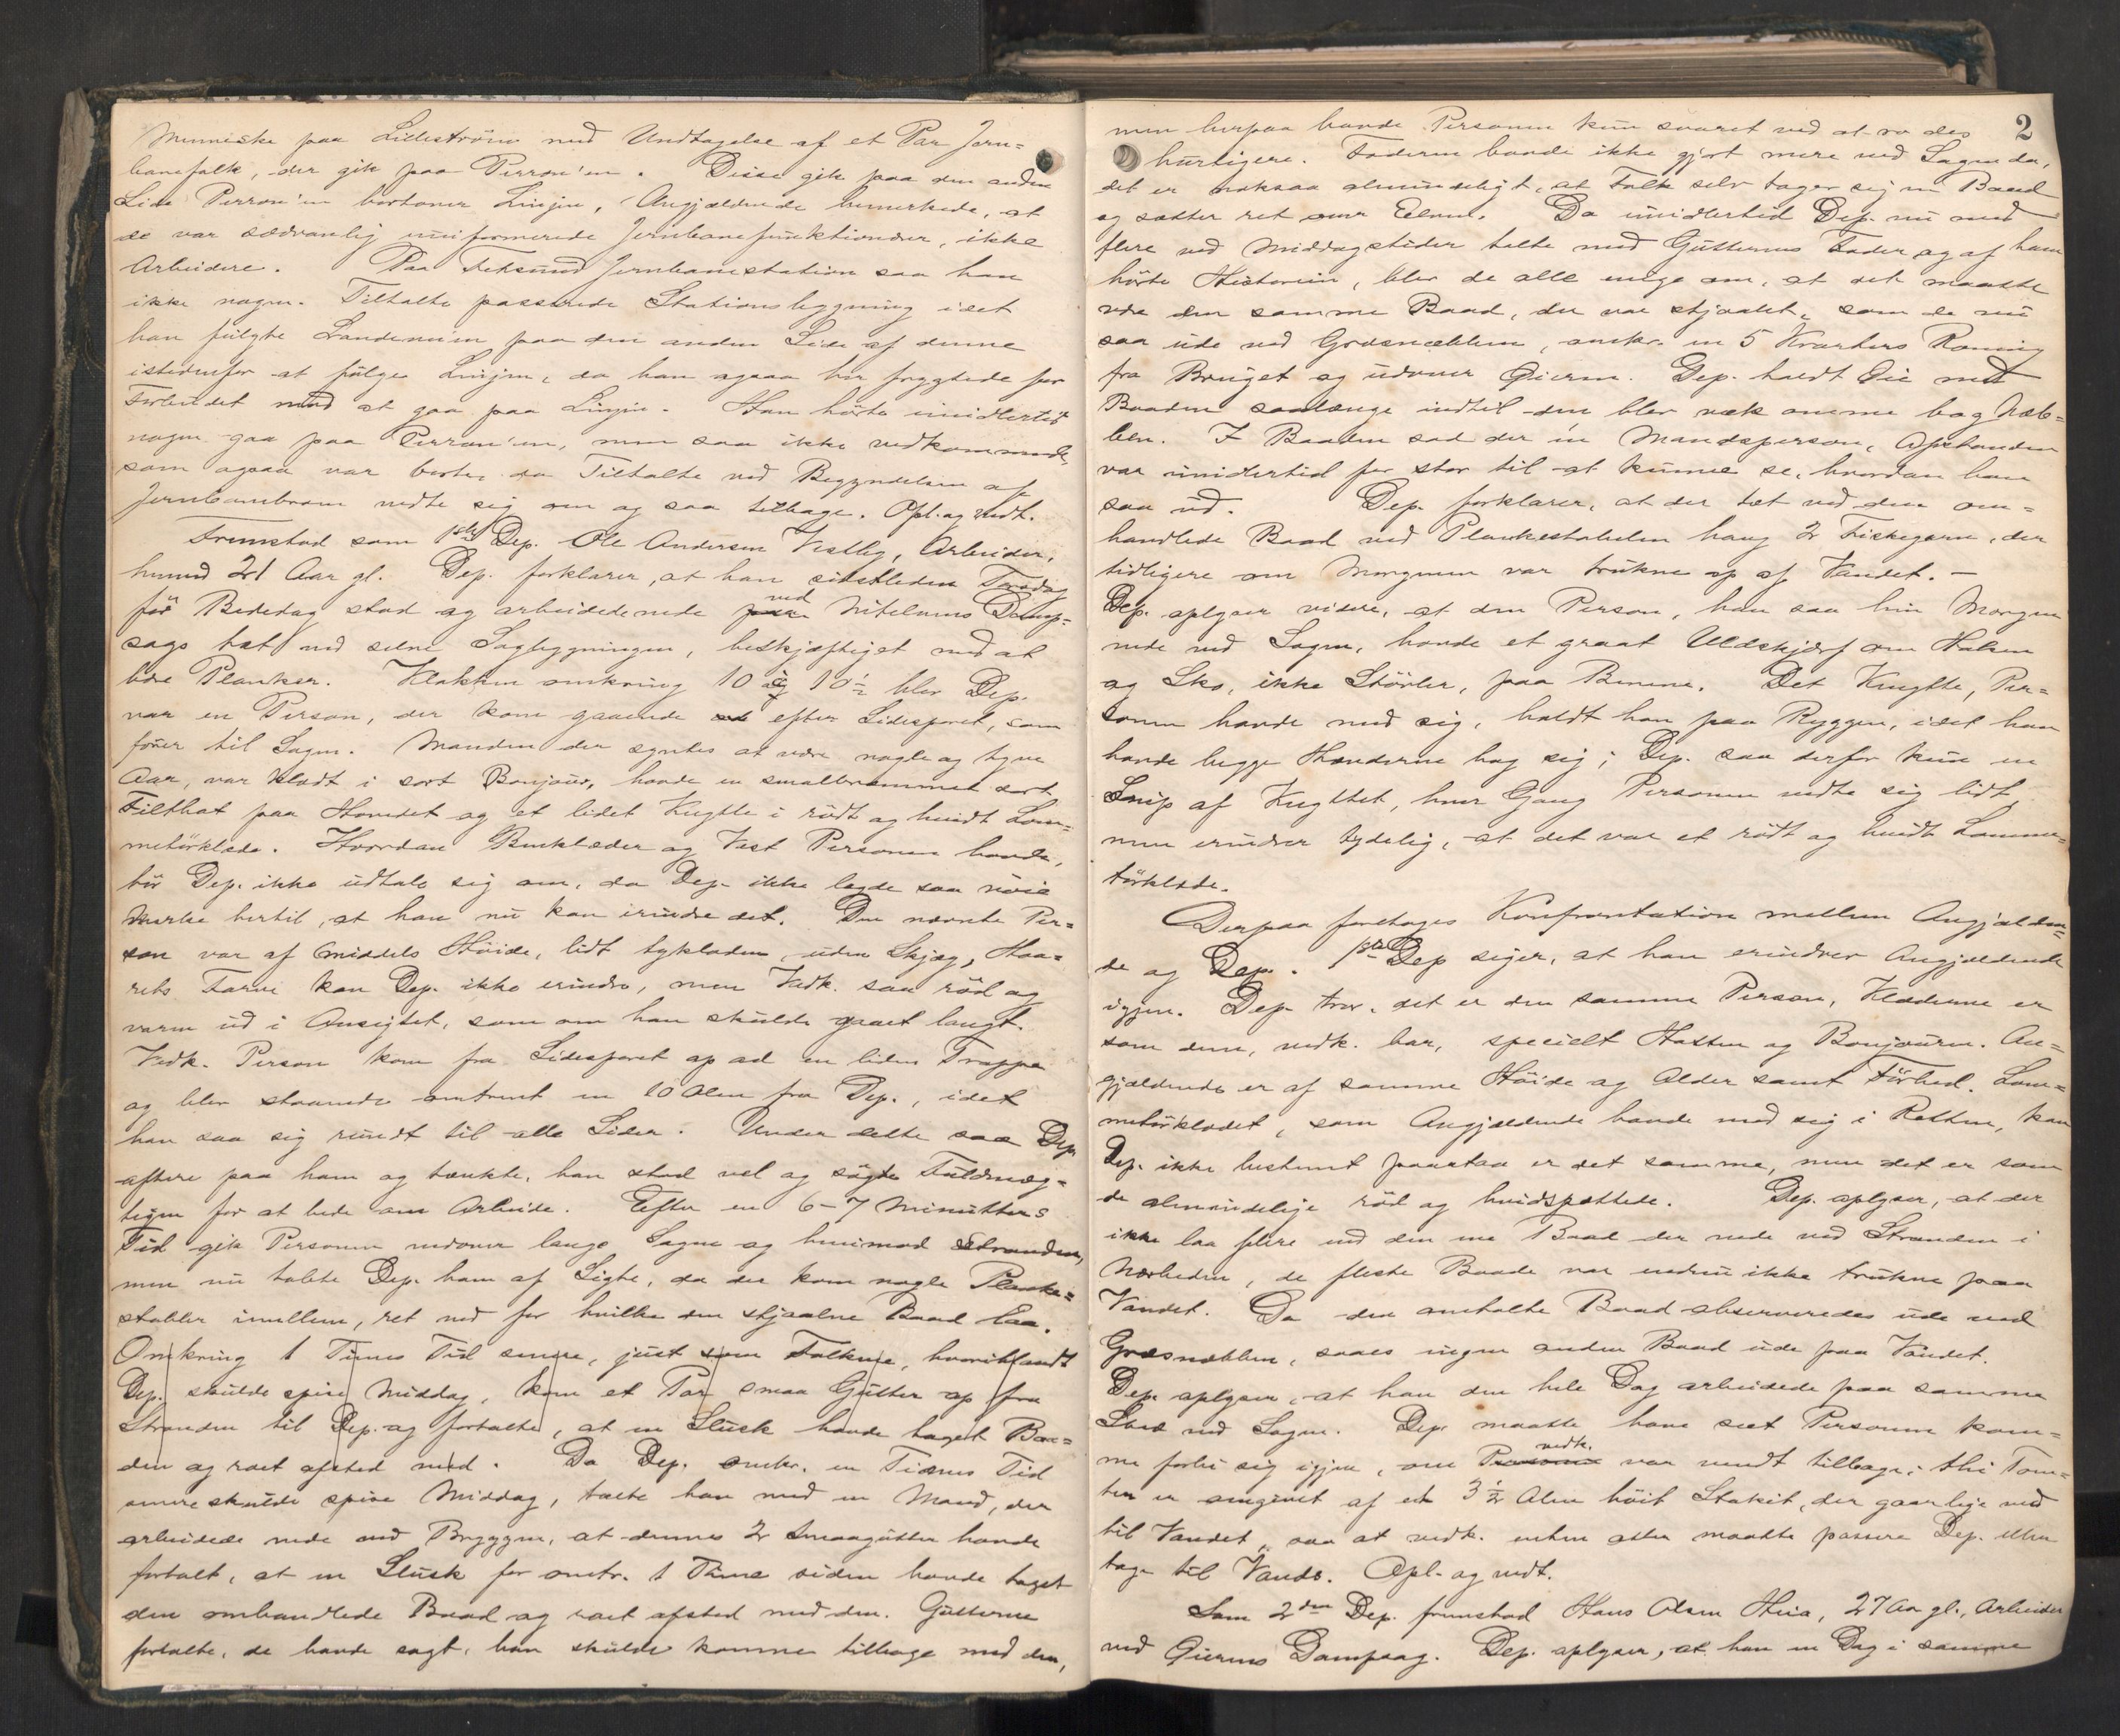 Menneske paa Lillestrøm med Undtagelse af et Par Jern=
banefolk, der gik paa Perron'en. Disse gik paa den anden
Side Perron'en bortover Linjen, Angjældende bemerkede, at
de var sædvanlig uniformerede Jernbanefunktionærer, ikke
Arbeidere. Paa Fetsund Jernbanestation saa han
ikke nogen. Tiltalte passerede Stationsbygning idet
han fulgte Landeveien paa den anden Side af denne
istedenfor at følge Linjen, da han ogsaa her frygtede for
Forbudet mod at gaa paa Linjen. Han hørte imidlertid
nogen gaa paa Perron'en, men saa ikke vedkommende,
som ogsaa var borte, da Tiltalte ved Begyndelsen af
Jernbanebroen vedte sig om og saa tilbage. Opl. og vedt.
Fremstod som 1ste Dep. Ole Andersen Vestby, Arbeider,
henved 21 Aar gl. Dep. forklarer, at han sidstleden Torsdag
før Bededag stod og arbeidede nede ved Nitelvens Damp=
sags tæt ved selve Sagbygningen, beskjæftiget med at
bære Planker. Klokken omkring 10 à 10½ blev Dep.
var en Person, der kom gaaende efter Sidesporet, som
fører til Sagen. Manden der syntes at være nogle og tyve
Aar, var klædt i sort Bonjour, havde en smalbremmet sort
Filthat paa Hovedet og et lidet Knytte i rødt og hvidt Lom=
metørklæde. Hvordan Benklæder og Vest Personen havde,
tør Dep. ikke udtale sig om, da Dep. ikke lagde saa nøie
Mærke hertil, at han nu kan erindre det. Den nævnte Per=
son var af middels Høide, lidt tykladen, uden Skjæg, Haa=
rets Farve kan Dep. ikke erindre, men Vedk. saa rød og
varm ud i Ansigtet, som om han skulde gaaet langt.
Vedk. Person kom fra Sidesporet op ad en liden Trappe
og blev staaende omtrent en 10 Alen fra Dep., idet
han saa sig rundt til alle Sider. Under dette saa Dep.
oftere paa ham og tænkte, han stod vel og søgte Fuldmæg=
tigen for at bede om Arbeide. Efter en 6-7 Minutters
Tid gik Personen nedover langs Sagen og henimod Stranden,
men nu tabte Dep. ham af Sigte, da der kom nogle Planke=
stabler imellem, ret ned for hvilke den stjaalne Baad laa.
Omkring 1 Times Tid senere, just som Folkene, hvoriblandt
Dep. skulde spise Middag, kom et Par smaa Gutter op fra
Stranden til Dep. og fortalte, at en Slusk havde taget Baa=
den og roet afsted med. Da Dep. omkr. en Times Tid
senere skulde spise Middag, talte han med en Mand, der
arbeidede nede ved Bryggen, at dennes 2 Smaagutter havde
fortalt, at en Slusk for omtr. 1 Time siden havde taget
den omhandlede Baad og roet afsted med den. Gutterne
fortalte, de havde sagt, han skulde komme tilbage med den,
2
men herpaa havde Personen kun svaret ved at ro des
hurtigere. Faderen havde ikke gjort mere ved Sagen da,
det er noksaa almindeligt, at Folk selv tager sig en Baad
og sætter ret over Elven. Da imidlertid Dep. nu med
flere ved Middagstider talte med Gutternes Fader og af ham
hørte Historien, blev de alle enige om, at det maatte
være den samme Baad, der var stjaalet, som de nu
saa ude ved Græsnæbben, omkr. en 5 Kvarters Roning
fra Bruget og udover Øieren. Dep. holdt Øie med
Baaden saalænge indtil den blev væk omme bag Næb=
ben. I Baaden sad der en Mandsperson, Afstanden
var imidlertid for stor til at kunne se, hvordan han
saa ud. Dep. forklarer, at der tæt ved den om=
handlede Baad ved Plankestabelen hang 2 Fiskegarn, der
tidligere om Morgenen var trukne op af Vandet. —
Dep. oplyser videre, at den Person, han saa hin Morgen
nede ved Sagen, havde et graat Uldskjærf om Halsen
og Sko, ikke Støvler, paa Benene. Det Knytte, Per=
sonen havde med sig, holdt han paa Ryggen, idet han
havde begge Hænderne bag sig; Dep. saa derfor kun en
Snip af Knyttet, hver Gang Personen vedte sig lidt,
men erindrer tydelig, at det var et rødt og hvidt Lomme=
tørklæde.
Derpaa foretages Konfrontation mellem Angjælden=
de og Dep. 1ste Dep siger, at han erindrer Angjældende
igjen. Dep. tror, det er den samme Person, Klæderne er
som dem, vedk. bar, specielt Hatten og Bonjouren. An=
gjældende er af samme Høide og Alder samt Førhed. Lom=
metørklædet, som Angjældende havde med sig i Retten, kan
Dep. ikke bestemt paastaa er det samme, men det er som
de almindelige rød og hvidspættede. Dep. oplyser, at der
ikke laa flere end den ene Baad der nede ved Stranden i
Nærheden, de fleste Baade var endnu ikke trukne paa
Vandet. Da den omtalte Baad observeredes ude ved
Græsnæbben, saaes ingen anden Baad ude paa Vandet.
Dep. oplyser, at han den hele Dag arbeidede paa samme
Sted ved Sagen. Dep. maatte have seet Personen kom=
me forbi sig igjen, om vedk. var vendt tilbage; thi Tom=
ten er omgivet af et 3½ Alen høit Stakit, der gaar lige ned
til Vandet, saa at vedk. enten atter maatte passere Dep. eller
tage til Vands. Opl. og vedt.
Som 2den Dep. fremstod Hans Olsen Huia, 27 Aar gl., Arbeider
ved Øierens Dampsag. Dep. oplyser, at han en Dag i samme